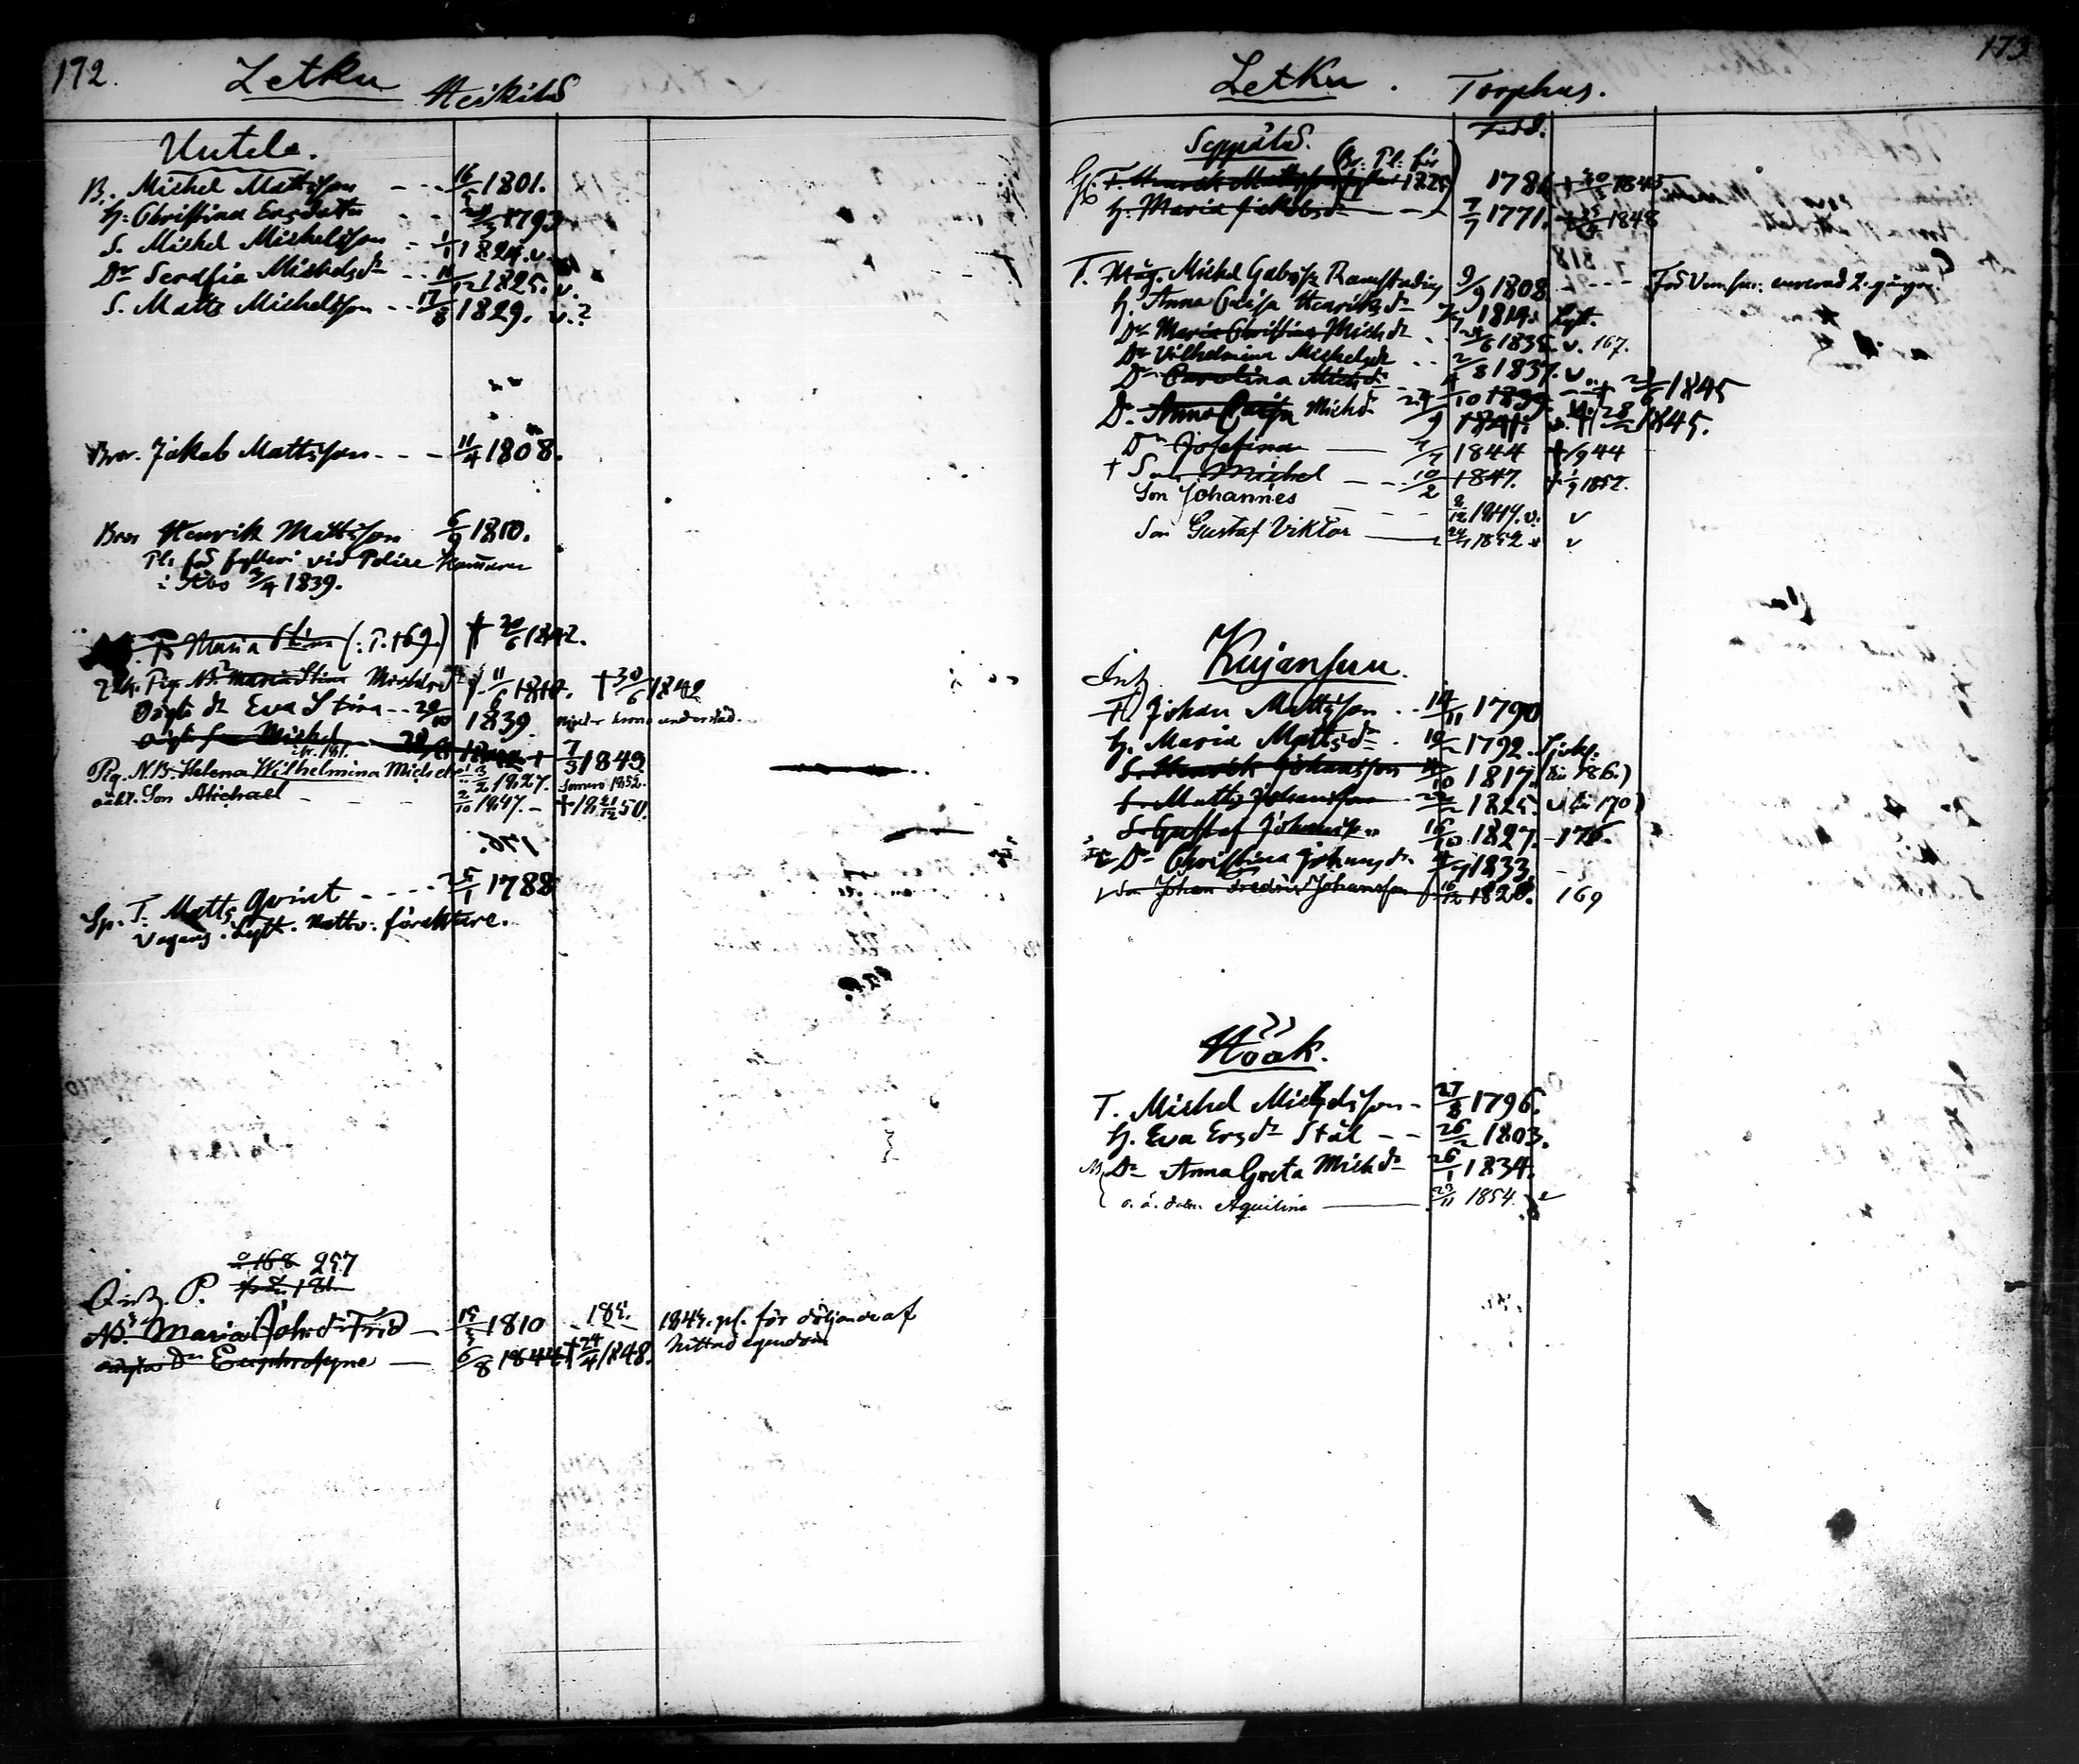 172. Letku Heikilä
Uutela.
B. Michel Mattsson - - - 16/5 1801.
H. Christina Ersdotter - - 1793
S. Michel Michelsson - 1/1 1824. v.
Dr Serafia Michelsdr - - 11/12 1825. v.
S. Matts Michelsson - - 17/8 1829. v.?
Bror. Jakob Mattsson - - - 11/4 1808.
Bror Henrik Mattsson 6/9 1810.
Pl. för fylleri vid Police Kamaren
i Åbo 3/4 1839.
P. Maria Stina (:P.169.) † 20/6 1842.
Pig. N.B. Maria Stina Michelsdr 11/6 1810. † 30/6 1842
Oägta dr Eva Stina - - 29/10 1839
oägt. son Michel 1849
Pig. N.B. Helena Wilhelmina Michelsdr 3/2 1827. Somero 1852.
oäkt. Son Michael - - - 2/10 1847. - † 18 21/12 50.
176.
Sp. T. Matts Qvint - - - - 25/1 1788
Vagang. Lytt. Nattv: föraktare.
o 168 257
från 181
Inh. P.
N.B. Maria Joh.dr Frid - 15/3 1810 181. 1845. pl. för döljande af
hittad egendom
oägta Dr Euphrosyne — 6/8 1844 † 24/4 1848.
173
Letku. Torphus.
Född.
Seppälä. (Br: Pl: för
T. Henrik Mattsson 1825) 1786 † 20/3 1845
H. Maria Jakobsdr - - 7/7 1771. † 1848
T. Måg. Michel Gabrielss. Ramstedius 9/9 1808 - - - - För 2. gånger.
H. Anna Caisa Henriksdr 1814 Lytt.
Dr Maria Christina Michdr - - 24/6 1835 v. 167.
Dr Vilhelmina Michelsdr - - 2/8 1837. v.
Dr Carolina Michdr 1839 - † 1845
Dr Anna Caisa Michdr 1841. v. † 28/2 1845.
Dr Josefina — 1844 † /9 44
† Son Michel - - 10/2 1847. † 1/9 1852.
Son Johannes - - - 1849. v. v
Son Gustaf Viktor — 1852 v
Kujansuu.
Inh.
T. Johan Mattsson - - 14/11 1790
H. Maria Mattsdr - 19/2 1792. Sjukl.
S. Henrik Johansson 10 1817. (till 186.)
S. Matts Johansson 22/2 1825. v (till 170)
S. Gustaf Johansson 16/10 1827. - 176.
Dr Christina Johansdr 4/7 1833.
v Son Johan Fredric Johansson 16/12 1820. 169
Höök.
T. Michel Michelsson - 27/8 1796.
H. Eva Ersdr Stål - - 26/2 1803.
Dr Anna Greta Michdr 26/1 1834.
o. ä. dotter Aquilina — 23/11 1854. v